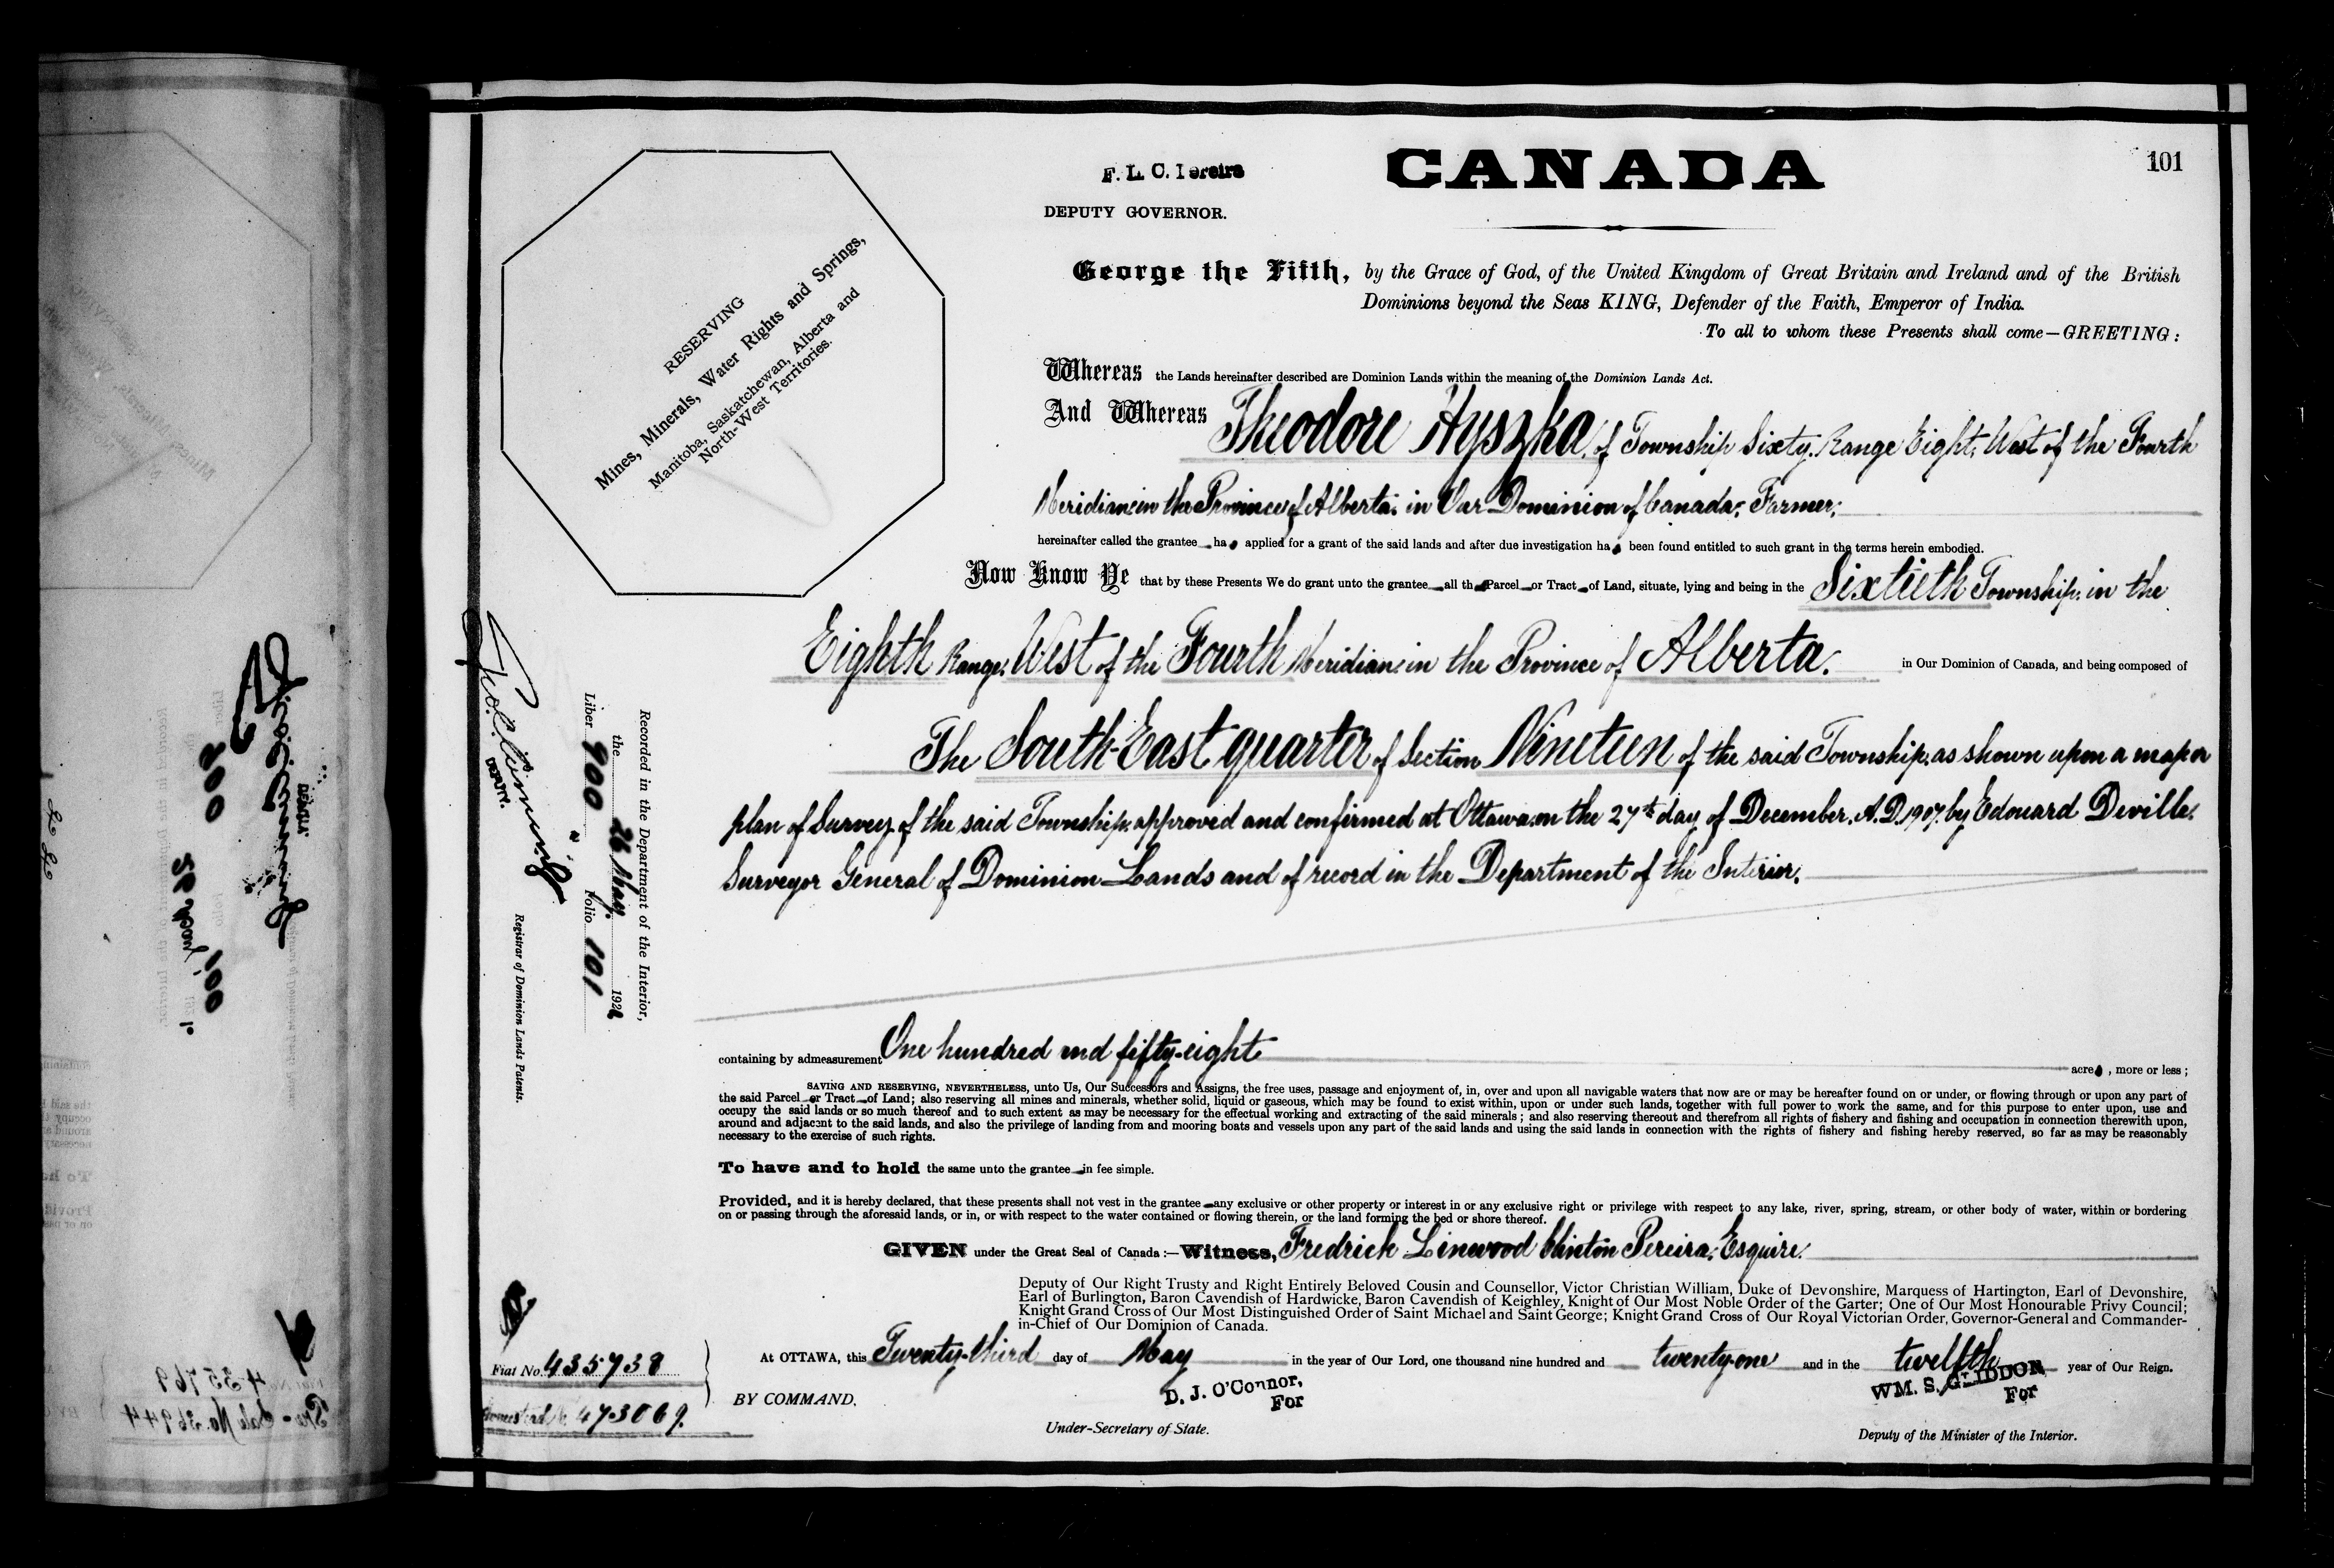 CANADA
101
F. L. C. Pereira
DEPUTY GOVERNOR.
RESERVING
Mines, Minerals, Water Rights and Springs,
Manitoba, Saskatchewan, Alberta and
North-West Territories.
George the Fifth, by the Grace of God, of the United Kingdom of Great Britain and Ireland and of the British
Dominions beyond the Seas KING, Defender of the Faith, Emperor of India.
To all to whom these Presents shall come—GREETING:
Whereas the Lands hereinafter described are Dominion Lands within the meaning of the Dominion Lands Act.
And Whereas Theodore Hyszka, of Township Sixty, Range Eight, West of the Fourth
Meridian, in the Province of Alberta, in Our Dominion of Canada, Farmer,
hereinafter called the grantee ha applied for a grant of the said lands and after due investigation ha been found entitled to such grant in the terms herein embodied.
Now Know Ye that by these Presents We do grant unto the grantee all th Parcel or Tract of Land, situate, lying and being in the Sixtieth Township, in the
Eighth Range, West of the Fourth Meridian, in the Province of Alberta, in Our Dominion of Canada, and being composed of
The South-East quarter of Section Nineteen of the said Township, as shown upon a map or
plan of Survey of the said Township, approved and confirmed at Ottawa, on the 27th day of December, A.D. 1907, by Edouard Deville,
Surveyor General of Dominion Lands and of record in the Department of the Interior.
containing by admeasurement One hundred and fifty-eight acre , more or less;
SAVING AND RESERVING, NEVERTHELESS, unto Us, Our Successors and Assigns, the free uses, passage and enjoyment of, in, over and upon all navigable waters that now are or may be hereafter found on or under, or flowing through or upon any part of
the said Parcel or Tract of Land; also reserving all mines and minerals, whether solid, liquid or gaseous, which may be found to exist within, upon or under such lands, together with full power to work the same, and for this purpose to enter upon, use and
occupy the said lands or so much thereof and to such extent as may be necessary for the effectual working and extracting of the said minerals; and also reserving thereout and therefrom all rights of fishery and fishing and occupation in connection therewith upon,
around and adjacent to the said lands, and also the privilege of landing from and mooring boats and vessels upon any part of the said lands and using the said lands in connection with the rights of fishery and fishing hereby reserved, so far as may be reasonably
necessary to the exercise of such rights.
To have and to hold the same unto the grantee in fee simple.
Provided, and it is hereby declared, that these presents shall not vest in the grantee any exclusive or other property or interest in or any exclusive right or privilege with respect to any lake, river, spring, stream, or other body of water, within or bordering
on or passing through the aforesaid lands, or in, or with respect to the water contained or flowing therein, or the land forming the bed or shore thereof.
GIVEN under the Great Seal of Canada:—Witness, Fredrick Linwood Clinton Pereira, Esquire,
Deputy of Our Right Trusty and Right Entirely Beloved Cousin and Counsellor, Victor Christian William, Duke of Devonshire, Marquess of Hartington, Earl of Devonshire,
Earl of Burlington, Baron Cavendish of Hardwicke, Baron Cavendish of Keighley, Knight of Our Most Noble Order of the Garter; One of Our Most Honourable Privy Council;
Knight Grand Cross of Our Most Distinguished Order of Saint Michael and Saint George; Knight Grand Cross of Our Royal Victorian Order, Governor-General and Commander-
in-Chief of Our Dominion of Canada.
At OTTAWA, this Twenty-third day of May in the year of Our Lord, one thousand nine hundred and twenty-one and in the twelfth year of Our Reign.
BY COMMAND.
D. J. O'Connor,
For
Under-Secretary of State.
WM. S. GLIDDON
For
Deputy of the Minister of the Interior.
Recorded in the Department of the Interior,
the 26 May, 1921
Liber 900 Folio 101
DEPUTY.
Registrar of Dominion Lands Patents.
Fiat No. 435738
Homestead No. 473069.